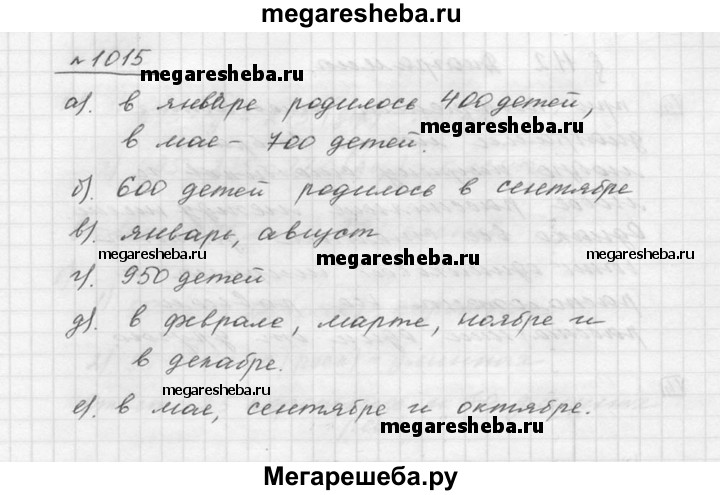 megaresheba.ru
№ 1015
megaresheba.ru
а). в январе родилось 400 детей,
megaresheba.ru
в мае - 700 детей.
б). 600 детей родилось в сентябре
в). январь, август
megaresheba.ru
megaresheba.ru
г). 950 детей
megaresheba.ru
д). в феврале, марте, ноябре и
в декабре.
megaresheba.ru
е). в мае, сентябре и октябре.
megaresheba.ru
Мегарешеба.ру